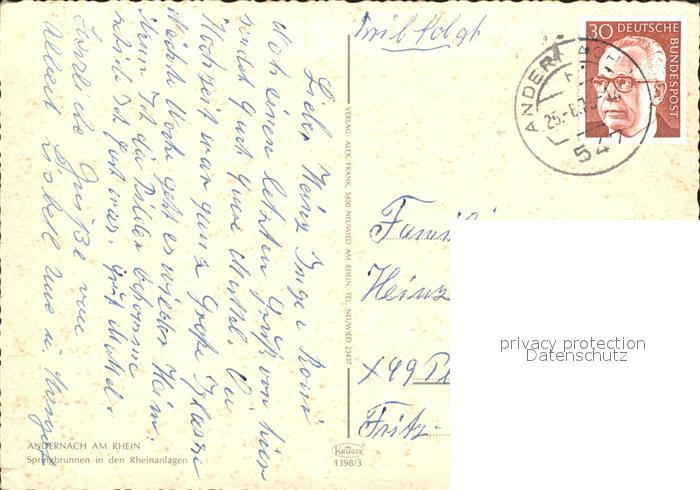 Brief folgt
30 DEUTSCHE
BUNDESPOST
ANDERN
25.-6.73
547
Lieber Heinz Inge u Roni
Noch einen letzten Gruß von hier
sendet Euch Eure Muttel. Die
Hochzeit war ganz Große Klasse
Nächste Woche geht es wieder Heim.
Wenn ich die Bilder bekomme
schicke ich Euch was. Gruß Muttel
Herzliche Grüße von
Albert Lisbeth Uwe u.
VERLAG: ALEX. FRANK, 5450 NEUWIED AM RHEIN, TEL. NEUWIED 23437
Famili
Heinz
X49
Fritz-
privacy protection
Datenschutz
ANDERNACH AM RHEIN
Springbrunnen in den Rheinanlagen
KRÜGER
1398/3